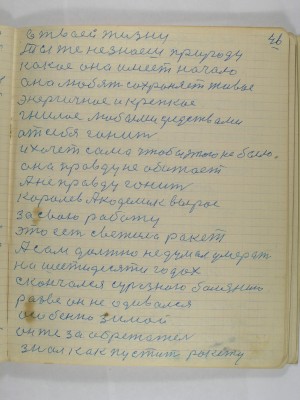 46
в твоей жизни
Ты же не знаеш природу
какое она имеет начало
она любят сохраняет живое
энергичное и крепкое
гнилое любыми средствами
от себя гонит
и хочет сама чтобы этого не было.
она правду не обижает
А не правду гонит
Королев Академик вырос
за свою работу
это есть светила ракет
А сам должно не думал умерать
на шестидесяти годах
скончался
разве он не одивался
особенно зимой
он же за обретател
знал как пустить ракету